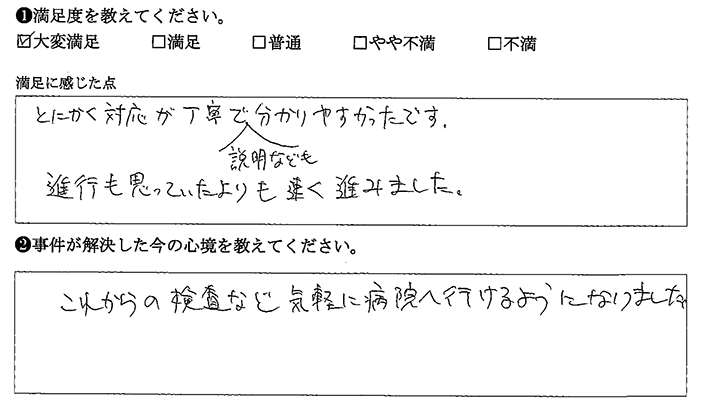 ❶満足度を教えてください。
☑大変満足 □満足 □普通 □やや不満 □不満
満足に感じた点
とにかく対応が丁寧で分かりやすかったです。
説明なども
進行も思っていたよりも速く進みました。
❷事件が解決した今の心境を教えてください。
これからの検査など気軽に病院へ行けるようになりました。